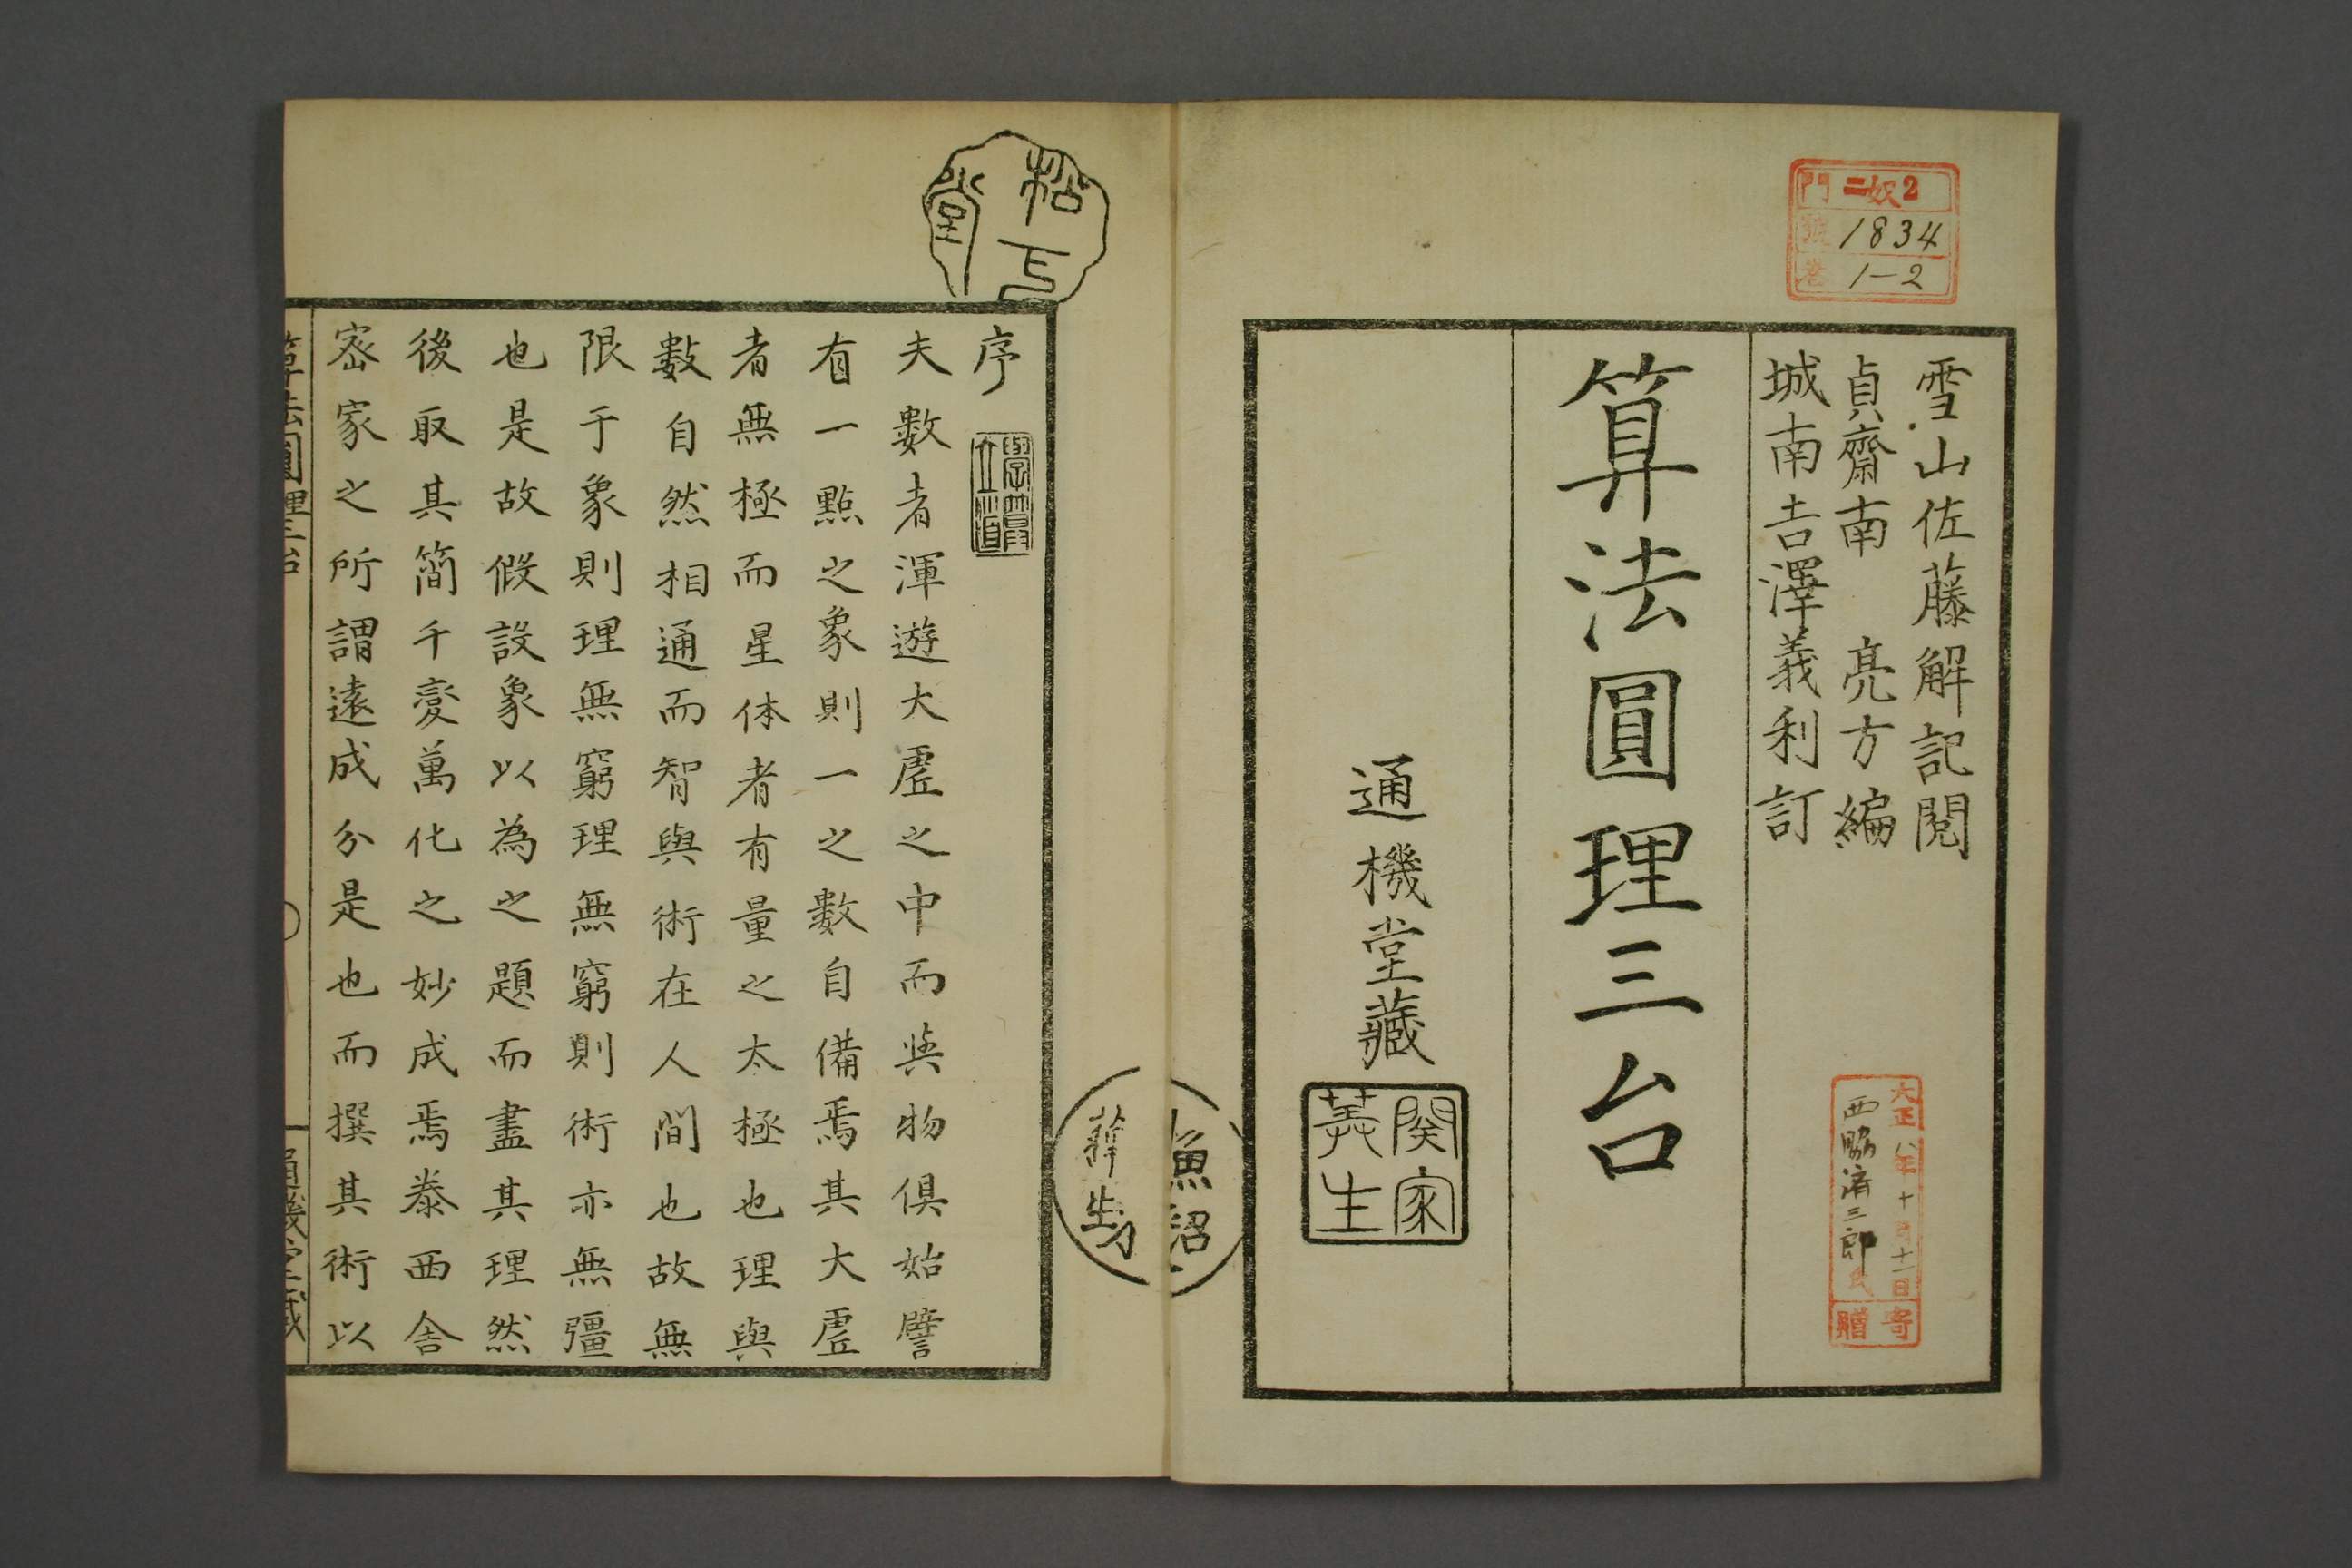 門 二奴2
號 1834
巻 1-2
雪山佐藤解記閲
貞齋南 亮方編
城南吉澤義利訂
算法圓理三台
通機堂藏
関家
大正八年十月十一日
西脇済三郎氏
寄贈
松
堂
序
夫數者渾遊大虚之中而與物俱始譬
有一點之象則一之數自備焉其大虚
者無極而星体者有量之太極也理與
數自然相通而智與術在人間也故無
限于象則理無窮理無窮則術亦無彊
也是故假設象以為之題而盡其理然
後取其簡千変萬化之妙成焉泰西舎
密家之所謂遠成分是也而撰其術以
算法圓理三台
通機堂藏